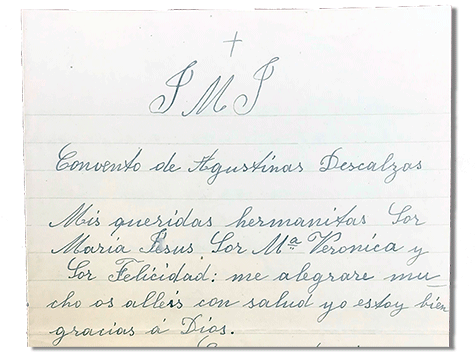 +
J M J
Convento de Agustinas Descalzas
Mis queridas hermanitas Sor
María Jesus Sor Mª Veronica y
Sor Felicidad: me alegrare mu_
cho os alleis con salud yo estoy bien
gracias a Dios.